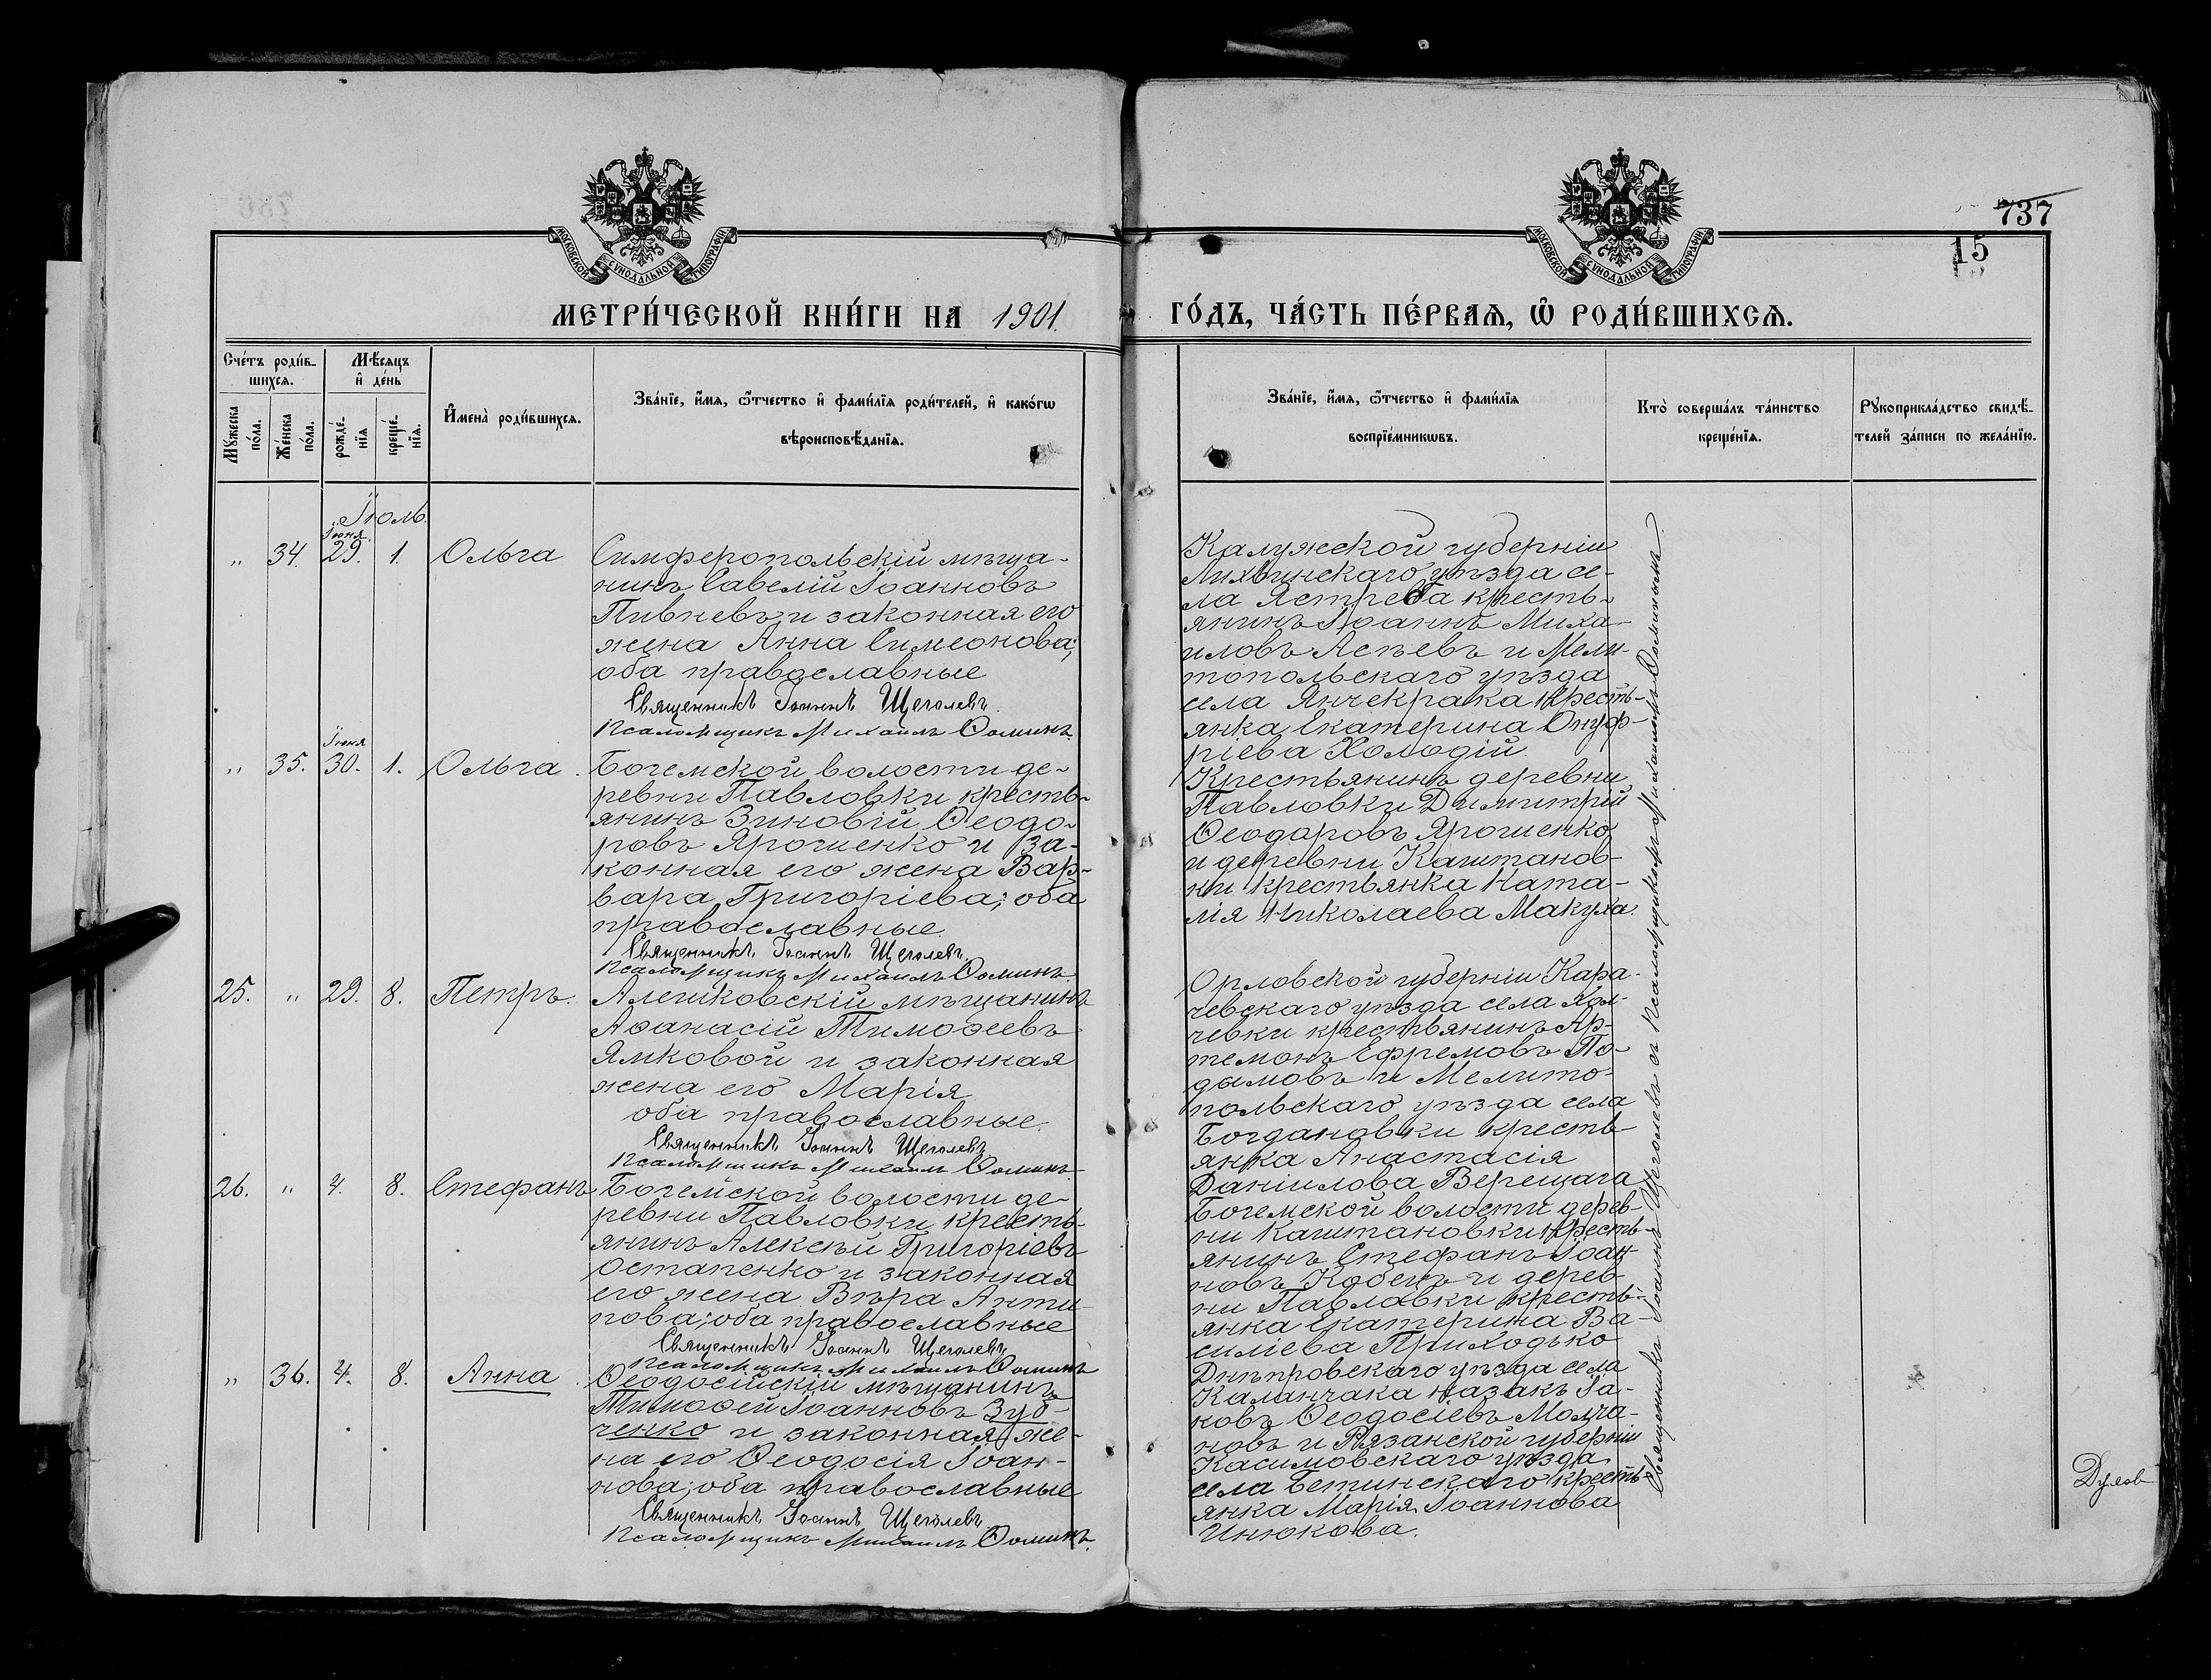 737
15
МОСКОВСКОЙ СѴНОДАЛЬНОЙ ТИПОГРАФІИ
МОСКОВСКОЙ СѴНОДАЛЬНОЙ ТИПОГРАФІИ
МЕТРИ́ЧЕСКОЙ КНИ́ГИ НА 1901.
ГО́ДЪ, ЧА́СТЬ ПЕ́РВАѦ, Ѽ РОДИ́ВШИХСѦ.
Счетъ роди́в-
шихсѧ.
Мꙋ́жеска по́ла.
Же́нска по́ла.
Мѣ́сѧцъ
и҆ де́нь
рожде́-нїѧ
креще́-нїѧ.
И҆мена̀ роди́вшихсѧ.
Зва́нїе, и҆́мѧ, ѻ҆́тчество и҆ фами́лїѧ роди́телей, и҆ како́гѡ
вѣроисповѣ́данїѧ.
Зва́нїе, и҆́мѧ, ѻ҆́тчество и҆ фами́лїѧ
воспрїе́мникѡвъ.
Кто̀ соверша́лъ та́инство
креще́нїѧ.
Рꙋкоприкла́дство свидѣ́-
телей за́писи по жела́нїю.
Іюль.
Іюня
„ 34. 29. 1. Ольга
Симферопольскій мѣща-
нинъ Савелій Іоанновъ
Пивневъ и законная его
жена Анна Симеонова;
оба православные
Священникъ Іоаннъ Щеголевъ.
Псаломщикъ Михаилъ Ѳоминъ.
Калужской губерніи
Лихвинскаго уѣзда се-
ла Ястреба кресть-
янинъ Іоаннъ Миха-
иловъ Асѣевъ и Мели-
топольскаго уѣзда
села Янчекрака кресть-
янка Екатерина Онуф-
ріева Холодій
Іюня
„ 35. 30. 1. Ольга.
Богемской волости де-
ревни Павловки кресть-
янинъ Зиновій Ѳеодо-
ровъ Ярошенко и за-
конная его жена Вар-
вара Григоріева; оба
православные.
Священникъ Іоаннъ Щеголевъ
Псаломщикъ Михаилъ Ѳоминъ.
Крестьянинъ деревни
Павловки Димитрій
Ѳеодоровъ Ярошенко
и деревни Каштанов-
ки крестьянка Ната-
лія Николаева Макуха.
25. „ 29. 8. Петръ.
Алешковскій мѣщанинъ
Аѳанасій Тимоѳеевъ
Ямковой и законная
жена его Марія
оба православные.
Священникъ Іоаннъ Щеголевъ
Псаломщикъ Михаилъ Ѳоминъ.
Орловской губерніи Кара-
чевскаго уѣзда села
чевки крестьянинъ Ар-
темонъ Ефремовъ
и Мелито-
польскаго уѣзда села
Богдановки кресть-
янка Анастасія
Даніилова Верещага
26. „ 4. 8. Стефанъ
Богемской волости де-
ревни Павловки кресть-
янинъ Алексѣй Григоріевъ
Остапенко и законная
его жена Вѣра Анти-
пова; оба православные
Священникъ Іоаннъ Щеголевъ
Псаломщикъ Михаилъ Ѳоминъ
Богемской волости дерев-
ни Каштановки кресть-
янинъ Стефанъ Іоан-
новъ Кобецъ и дерев-
ни Павловки кресть-
янка Екатерина Ва-
силіева Приходько
„ 36. 4. 8. Анна.
Ѳеодосійскій мѣщанинъ
Тимоѳей Іоанновъ Зуб-
ченко и законная же-
на его Ѳеодосія Іоан-
нова; оба православные
Священникъ Іоаннъ Щеголевъ
Псаломщикъ Михаилъ Ѳоминъ.
Днѣпровскаго уѣзда села
Каланчака казакъ Іа-
ковъ Ѳеодосіевъ Молча-
новъ и Рязанской губерніи
Касимовскаго уѣзда
села Бетинскаго кресть-
янка Марія Іоаннова
Инюкова.
Священникъ Іоаннъ Щеголевъ съ Псаломщикомъ Михаиломъ Ѳоминымъ.